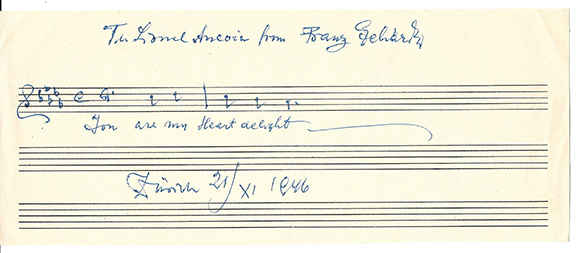 To Lionel from Franz Lehár
You are my Heart delight
Zürich 21/XI 1946